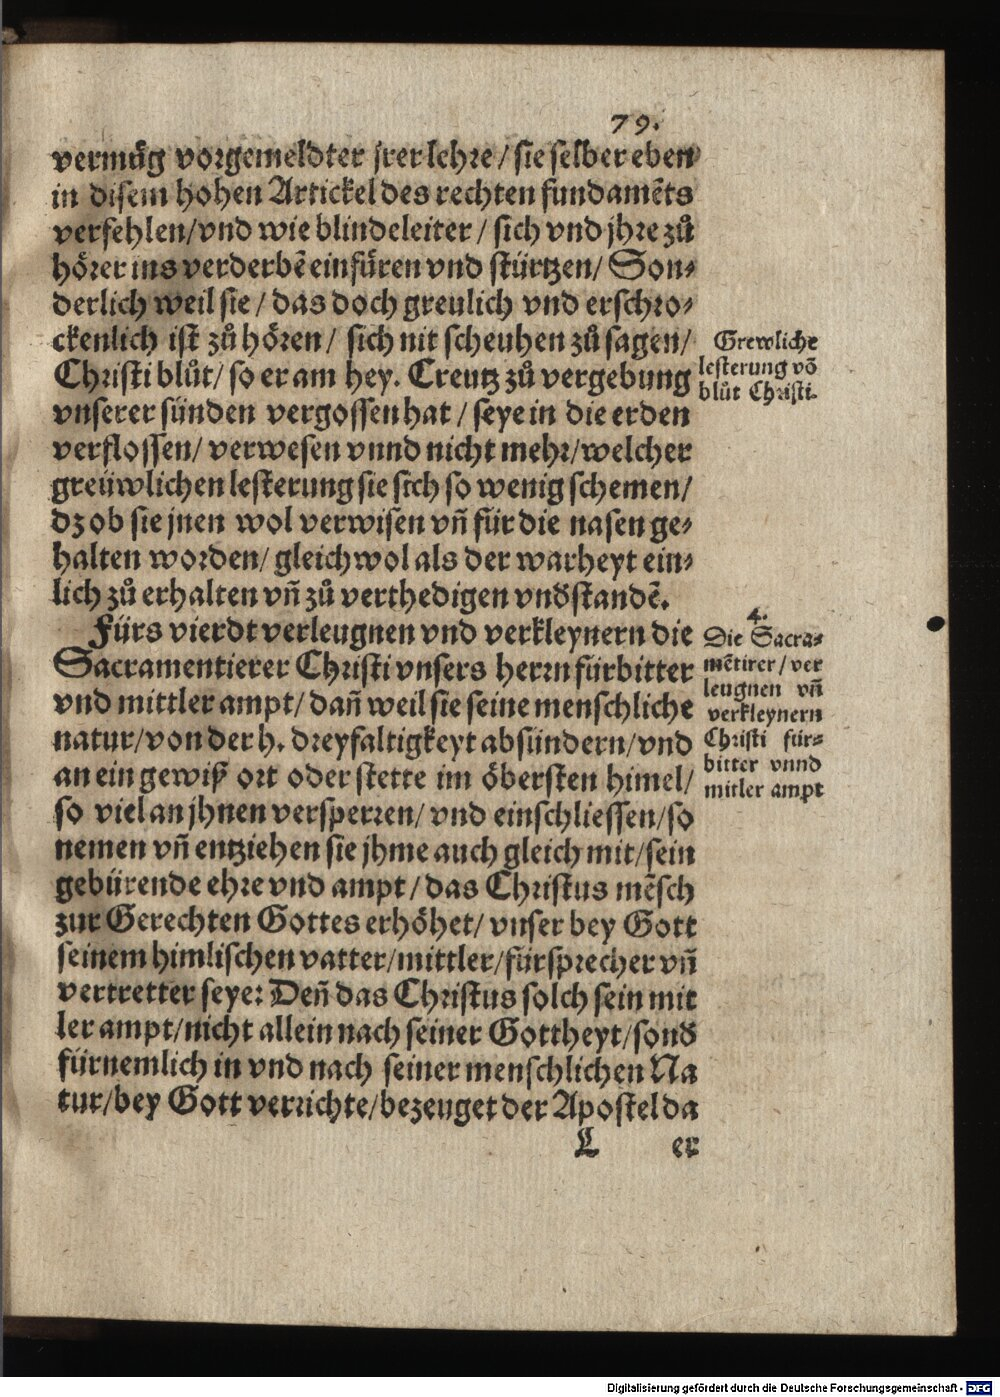 79.
vermůg vorgemeldter jrer lehre / sie selber eben
in disem hohen Artickel des rechten fundamẽts
verfehlen/vnd wie blindeleiter / sich vnd jhre zů
hörer ins verderbẽ einfüren vnd stürtzen/ Son⸗
derlich weil sie / das doch greulich vnd erschro⸗
ckenlich ist zů hören / sich nit scheuhen zů sagen/
Christi blůt/ so er am hey. Creutz zů vergebung
vnserer sünden vergossen hat / seye in die erden
verflossen/ verwesen vnnd nicht mehr/welcher
greüwlichen lesterung sie sich so wenig schemen/
dz ob sie jnen wol verwisen vñ für die nasen ge⸗
halten worden/ gleichwol als der warheyt ein⸗
lich zů erhalten vñ zů verthedigen vnd̕standẽ.
Grewliche
lesterung võ
blůt Christi.
Fürs vierdt verleugnen vnd verkleynern die
Sacramentierer Christi vnsers herrn fürbitter
vnd mittler ampt/ dañ weil sie seine menschliche
natur/von der h. dreyfaltigkeyt absündern/vnd
an ein gewiß ort oder stette im öbersten himel/
so viel an jhnen versperren/ vnd einschliessen/so
nemen vñ entziehen sie jhme auch gleich mit/sein
gebürende ehre vnd ampt / das Christus mẽsch
zur Gerechten Gottes erhöhet/ vnser bey Gott
seinem himlischen vatter/mittler/fürsprecher vñ
vertretter seye: Deñ das Christus solch sein mit
ler ampt/nicht allein nach seiner Gottheyt/sond̕
fürnemlich in vnd nach seiner menschlichen Na
tur/bey Gott verrichte/bezeuget der Apostel da
4.
Die Sacra⸗
mẽtirer / ver
leugnen vñ
verkleynern
Christi für⸗
bitter vnnd
mitler ampt
L er
Digitalisierung gefördert durch die Deutsche Forschungsgemeinschaft - DFG